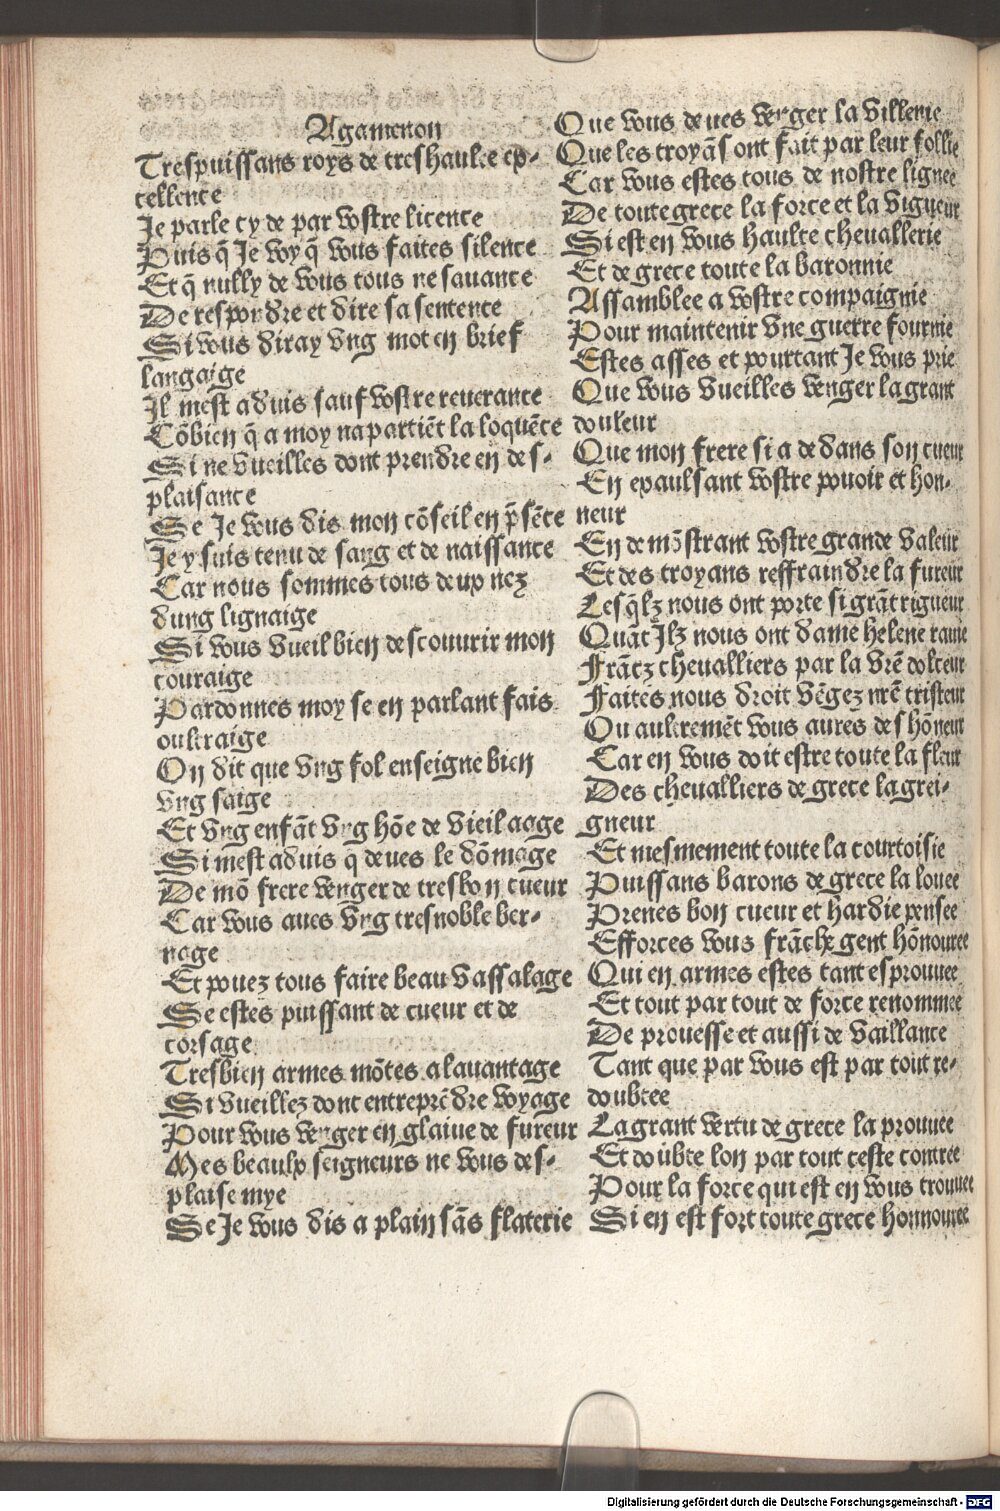 Agamenon
Trespuissans roys de treshaulte ex-
cellence
Je parle cy de par vostre licence
Puis q̃ Je voy q̃ vous faites silence
Et q̃ nully de vous tous ne sauance
De respondre et dire sa sentence
Si vous diray vng mot en brief
langaige
Jl mest aduis sauf vostre reuerance
Cõbien q̃ a moy napartiẽt la loquẽce
Si ne vueilles dont prendre en des-
plaisance
Se Je vous dis mon cõseil en p̃sẽce
Je y suis tenu de sang et de naissance
Car nous sommes tous deux nez
dung lignaige
Si vous vueil bien descouurir mon
couraige
Pardonnes moy se en parlant fais
oultraige
On dit que vng fol enseigne bien
vng saige
Et vng enfãt vng hõe de vieil aage
Si mest aduis q deues le dõmage
De mõ frere venger de tresbon cueur
Car vous aues vng tresnoble ber-
nage
Et pouez tous faire beau vassalage
Se estes puissant de cueur et de
corsage
Tresbien armes mõtes alauantage
Si vueillez dont entreprẽdre voyage
Pour vous venger en glaiue de fureur
Mes beaulx seigneurs ne vous des-
plaise mye
Se Je vous dis a plain sãs flaterie
Que vous deues venger la villenie
Que les troyãs ont fait par leur follie
Car vous estes tous de nostre lignee
De toute grece la force et la vigueur
Si est en vous haulte cheuallerie
Et de grece toute la baronnie
Assamblee a vostre compaignie
Pour maintenir vne guerre fournie
Estes asses et pourtant Je vous prie
Que vous vueilles venger la grant
douleur
Que mon frere si a dedans son cueur
En epaulsant vostre pouoir et hon-
neur
En demõstrant vostre grande valeur
Et des troyans reffraindre la fureur
Lesq̃lz nous ont porte si grãt rigueur
Quãt Jlz nous ont dame helene rauie
Frãcz cheualliers par la vr̃e dolceur
Faites nous droit vẽgez nr̃e tristeur
Ou aultremẽt vous aures deshõneur
Car en vous doit estre toute la fleur
Des cheualliers de grece la grei-
gneur
Et mesmement toute la courtoisie
Puissans barons de grece la louee
Prenes bon cueur et hardie pensee
Efforces vous frãche gent hõnouree
Qui en armes estes tant esprouuee
Et tout par tout de force renommee
De prouesse et aussi de vaillance
Tant que par vous est par tout re-
doubtee
La grant vertu de grece la prouuee
Et doubte lon par tout ceste contree
Pour la force qui est en vous trouuee
Si en est fort toute grece honnouree
Digitalisierung gefördert durch die Deutsche Forschungsgemeinschaft - DFG